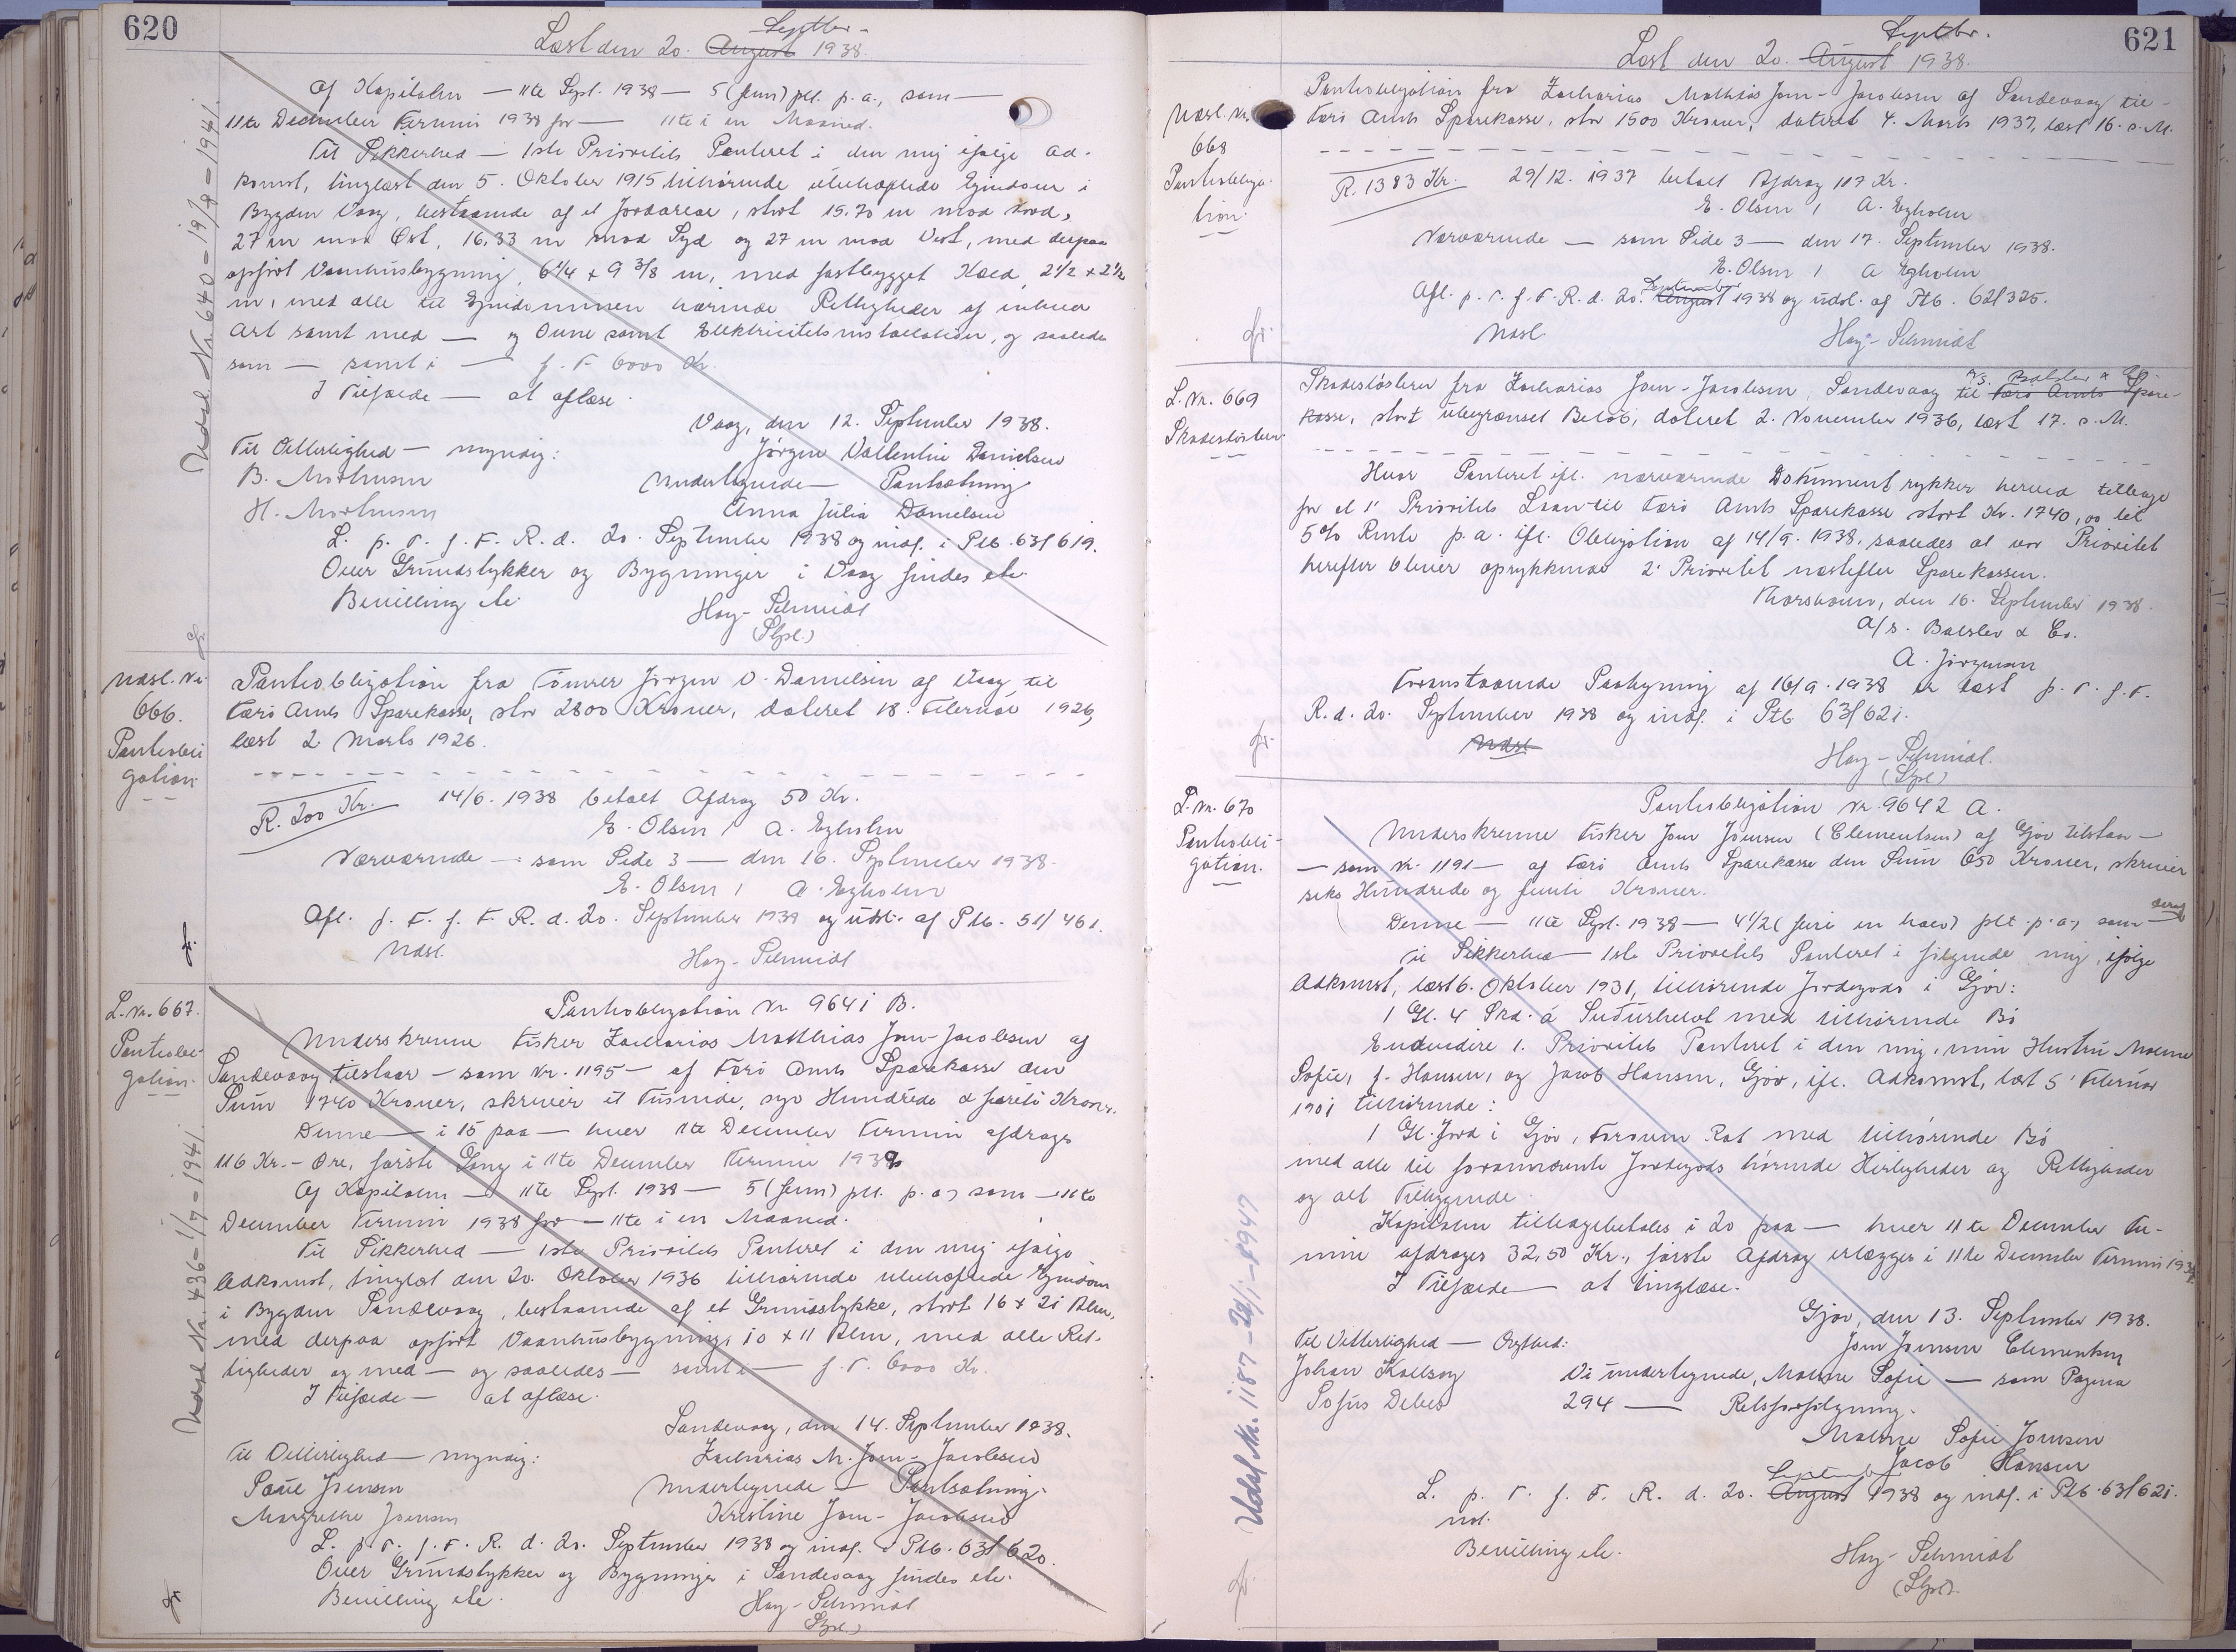 620
Septbr.
Læst den 20. August 1938.
af Kapitalen — 11te Sept. 1938 — 5 (fem) pct. p. a., som —
11te December Termin 1938 for — 11te i en Maaned.
Til Sikkerhed — 1ste Prioritets Panteret i den mig ifølge Ad-
komst, tinglæst den 5. Oktober 1915 tilhørende ubehæftede Ejendom i
Bygden Vaag, bestaaende af et Jordareal, stort 15.70 m mod Nord,
27 m mod Øst, 16,33 m mod Syd og 27 m mod Vest, med derpaa
opført Vaanhusbygning, 6 1/4 x 9 3/8 m, med fastbygget Kæld 2 1/2 x 2 1/2
m, med alle til Ejendommen hørende Rettigheder af enhver
Art samt med — og Ovne samt Elektricitetsinstallation, og saaledes
som — samt i — f. T. 6000 Kr.
I Tilfælde — at aflæse.
Vaag, den 12. September 1938.
Til Vitterlighed — myndig:
Jørgen Vallentin Danielsen
B. Mortensen
Undertegnede — Pantsætning
H. Mortensen
Anna Julia Danielsen
L. p. T. f. F. R. d. 20. September 1938 og indf. i Ptb. 63/619.
Over Grundstykker og Bygninger i Vaag findes etc.
Bevilling etc.
Hay-Schmidt
(Stpl.)
Udsl. Nr. 640 - 19/8 - 1941.
gr.
Udsl. Nr.
666.
Pantobli
gation
Pantobligation fra Tømrer Jørgen V. Danielsen af Vaag til
Færø Amts Sparekasse, stor 2800 Kroner, dateret 18. Februar 1926,
læst 2. Marts 1926.
R. 200 Kr.
14/6. 1938 betalt Afdrag 50 Kr.
E. Olsen / A. Egholm
Nærværende — som Side 3 — den 16. September 1938.
E. Olsen / A. Egholm
Afl. p. T. f. F. R. d. 20. September 1938 og udsl. af Ptb. 51/461.
Udsl.
Hay-Schmidt
gr.
L. Nr. 667.
Pantobli-
gation.
Pantobligation Nr 9641 B.
Underskrevne Fisker Zacharias Matthias Joen-Jacobsen af
Sandevaag tilstaar — som Nr. 1195 — af Færø Amts Sparekasse den
Sum 1740 Kroner, skriver et Tusinde, syv Hundrede & fyrreti Kroner.
Denne — i 15 paa — hver 11te December Termin afdrages
116 Kr. - Øre, første Gang i 11te December Termin 1939
Af Kapitalen — 11te Sept. 1938 — 5 (fem) pct. p. a., som — 11te
December Termin 1938 for — 11te i en Maaned.
Til Sikkerhed — 1ste Prioritets Panteret i den mig ifølge
Adkomst, tinglæst den 20. Oktober 1936 tilhørende ubehæftede Ejendom
i Bygden Sandevaag, bestaaende af et Grundstykke, stort 16 x 21 Alen,
med derpaa opført Vaanhusbygning, 10 x 11 Alen, med alle Ret-
tigheder og med — og saaledes — samt i — f. T. 6000 Kr.
I Tilfælde — at aflæse.
Sandevaag, den 14. September 1938.
Til Vitterlighed — myndig:
Zacharias M. Joen-Jacobsen
Poul Joensen
Undertegnede — Pantsætning.
Margrethe Joensen
Kristine Joen-Jacobsen
L. p. T. f. F. R. d. 20. September 1938 og indf. i Ptb. 63/620.
Over Grundstykker og Bygninger i Sandevaag findes etc.
Bevilling etc.
Hay-Schmidt
Stpl.)
Udsl. Nr. 436 - 1/7 - 1941.
gr.
621
Septbr.
Læst den 20. August 1938.
Udsl. Nr.
668
Pantobliga-
tion.
Pantobligation fra Zacharias Mathias Joen-Jacobsen af Sandevaag til
Færø Amts Sparekasse, stor 1500 Kroner, dateret 4. Marts 1937, læst 16. s. M.
R. 1383 Kr.
29/12. 1937 betalt Afdrag 117 Kr.
E. Olsen / A. Egholm
Nærværende — som Side 3 — den 17. September 1938.
E. Olsen / A Egholm
September
Afl. p. T. f. F. R. d. 20. August 1938 og udsl. af Ptb. 62/325.
Udsl.
Hay-Schmidt
gr.
L. Nr. 669
Skadesløsbrev
A/S. Balslev & Co.
Skadesløsbrev fra Zacharias Joen-Jacobsen, Sandevaag til Færø Amts Spare-
kasse, stort ubegrænset Beløb, dateret 2. November 1936, læst 17. s. M.
Hvor Panteret ifl. nærværende Dokument rykker herved tilbage
for et 1' Prioritets Laan til Færø Amts Sparekasse stort Kr. 1740,00 til
5% Rente p. a. ifl. Obligation af 14/9. 1938, saaledes at vor Prioritet
herefter bliver oprykkende 2' Prioritet næstefter Sparekassen.
Thorshavn, den 16. September 1938.
A/S. Balslev & Co.
A. Jørgensen
Foranstaaende Paategning af 16/9. 1938 er læst p. T. f. F.
R. d. 20. September 1938 og indf. i Ptb 63/621.
Udsl
Hay-Schmidt.
(Stpl.)
gr.
L. Nr. 670
Pantobli-
gation.
Pantobligation Nr. 9642 A.
Underskrevne Fisker Joen Joensen (Clementsen) af Gjov tilstaar —
— som Nr. 1191 — af Færø Amts Sparekasse den Sum 650 Kroner, skriver
seks Hundrede og femti Kroner.
Denne — 11te Sept. 1938 — 4 1/2 (fire en halv) pct. p. a., som —
Til Sikkerhed — 1ste Prioritets Panteret i følgende mig, ifølge
Adkomst, læst 6. Oktober 1931, tilhørende Jordegods i Gjov:
1 Gl. 4 Skd. á Suðurhelvt med tilhørende Bö
Endvidere 1. Prioritets Panteret i den mig, min Hustru Malene
Sofie, f. Hansen, og Jacob Hansen, Gjov, ifl. Adkomst, læst 5' Februar
1901 tilhørende:
1 Gl. Jord i Gjov, Foroven Rat med tilhørende Bö
med alle til forannævnte Jordegods hørende Herligheder og Rettigheder
og alt Tilliggende.
Kapitalen tilbagebetales i 20 paa — hver 11te December Ter-
min afdrages 32,50 Kr., første Afdrag erlægges i 11te December Termin 193
I Tilfælde — at tinglæse.
Gjov, den 13. September 1938.
Til Vitterlighed — Ægthed:
Joen Joensen Clementsen
Johan Kallsoy
Vi undertegnede, Malene Sofie — som Pagina
Sofus Debes
294 — Retsforfølgning.
Malene Sofie Joensen
Jacob Hansen
September
L. p. T. f. F. R. d. 20. August 1938 og indf. i Ptb. 63/621.
Bevilling etc.
Hay-Schmidt
(Stpl.).
Udsl. Nr. 1187 - 28/1 - 1947
gr.